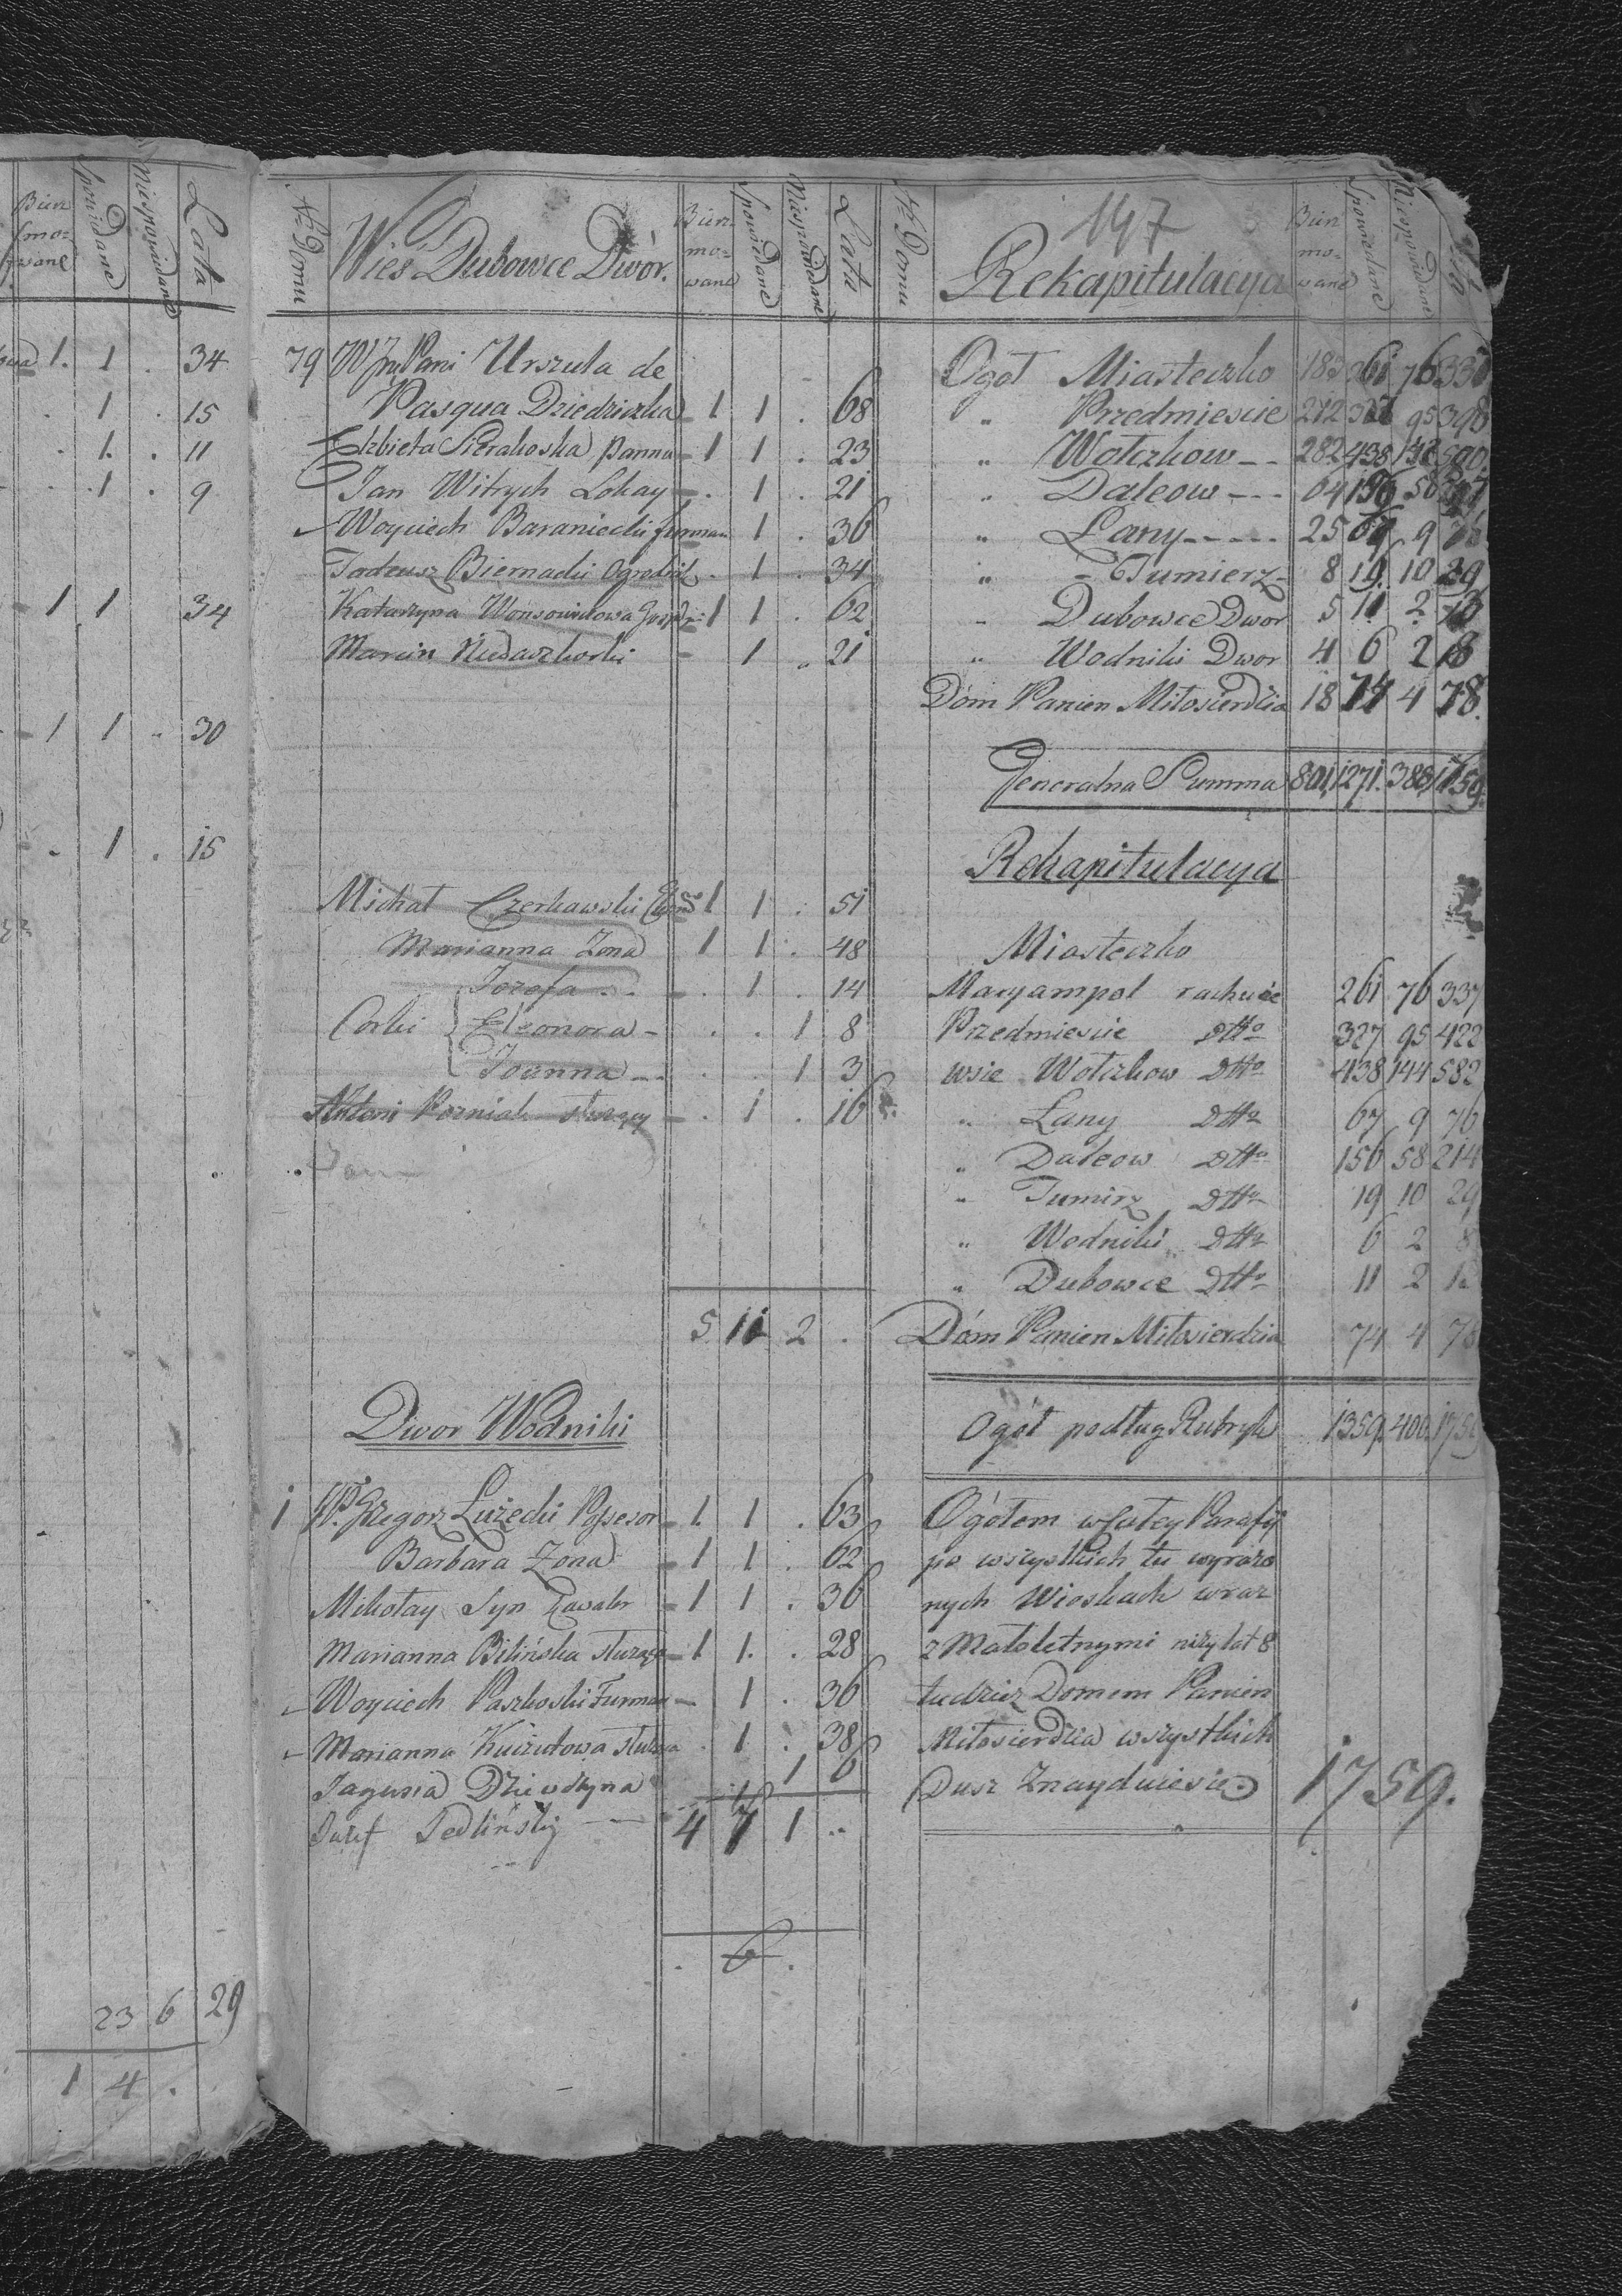 Bierz
mo=
wane
Spowiedane
Niespowiedane
Lata
1. 1 . 34
. 1 . 15
. 1. . 11
. 1 . 9
1 1 34
1 1 . 30
. 1 . 15
23 6 29
1 4 .
No Domu
Wieś Dubowce Dwór.
Bierz-
mo=
wane
Spowiedane
Niespowiedane
Lata
79 Urszula de
Pasqua Dziedziczka 1 1 . 68
Elzbieta Sierakoska panna 1 1 . 23
Jan Witrych Lokay . 1 . 21
Woyciech Baraniecki furman 1 . 36
Tadeusz Biernacki Ogrodnik . 1 . 34
Katarzyna 1 1 . 62
Marcin 1 . 21
Michał Czerkawski 1 1 . 51
Marianna Zona 1 1 . 48
Jozefa . 1 . 14
Corki Eleonora . . 1 8
Joanna . . 1 3
Antoni Pozniak służący . 1 . 16
Jan
5. 11 2 .
Dwor Wodniki
1 WP. Grzegorz Łużecki Possesor 1. 1 . 63
Barbara Zona 1 1 . 62
Mikołay Syn Kawaler 1 1 . 36
Marianna Bilińska służąca 1 1. . 28
Woyciech Paszkoski Furman 1 . 36
Marianna służąca . 1 . 38
Jagusia Dziewczyna 1 6
Józef Jedliński
4 7 1 ..
. 6 .
147
No Domu
Rekapitulacya
Bierz
mo=
wane
Spowiedane
Niespowiedane
Ogół Miasteczko 183 261 76
" Przedmiescie 212 95 398
" Wołczkow 282 438
" Daleow 64 156 58
" Łany 25 9 76
" Tumierz 8 19 10 29
" Dubowce Dwor 5 11 2
" Wodniki Dwor 4 6 2 8
Dóm Panien Miłosierdzia 18 74 4 78.
Generalna Summa 801 1271.
Rekapitulacya
Miasteczko
Maryampol rachuie 261 76 337
Przedmiescie Dtto 327 95 422
wsie Wołczkow Dtto 438 144 582
" Łany Dtto 67 9 76
" Daleow Dtto 156 58 214
" Tumirz Dtto 19 10 29
" Wodniki Dtto 6 2 8
" Dubowce Dtto 11 2
Dóm Panien Miłosierdzia 74 4 78
Ogół podług Rubryk 1359. 400. 1759
Ogółem w całey Parafij
po wszystkich tu wyrażo
nych Wioskach wraz
z Małoletnymi niży lat 8
tudzież Domem Panien
Miłosierdzia wszystkich
Dusz Znayduie się 1759.